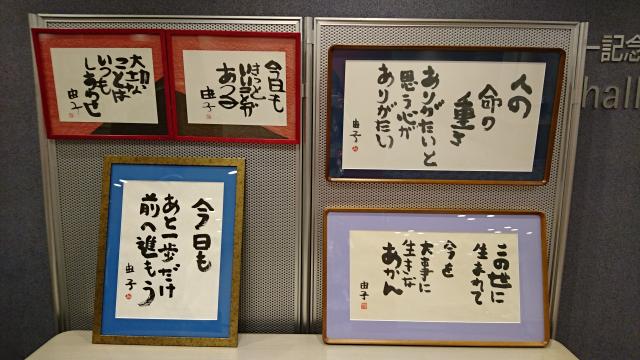 大切な
ことは
いつも
しあわせ
由子
今日も
きっと
いい事が
あつる
由子
人の
命の
重さ
ありがたいと
思う心が
ありがたい
由子
今日も
あと一歩だけ
前へ進もう
由子
この世に
生まれて
今を
大事に
生きな
あかん
由子
一記念
hall